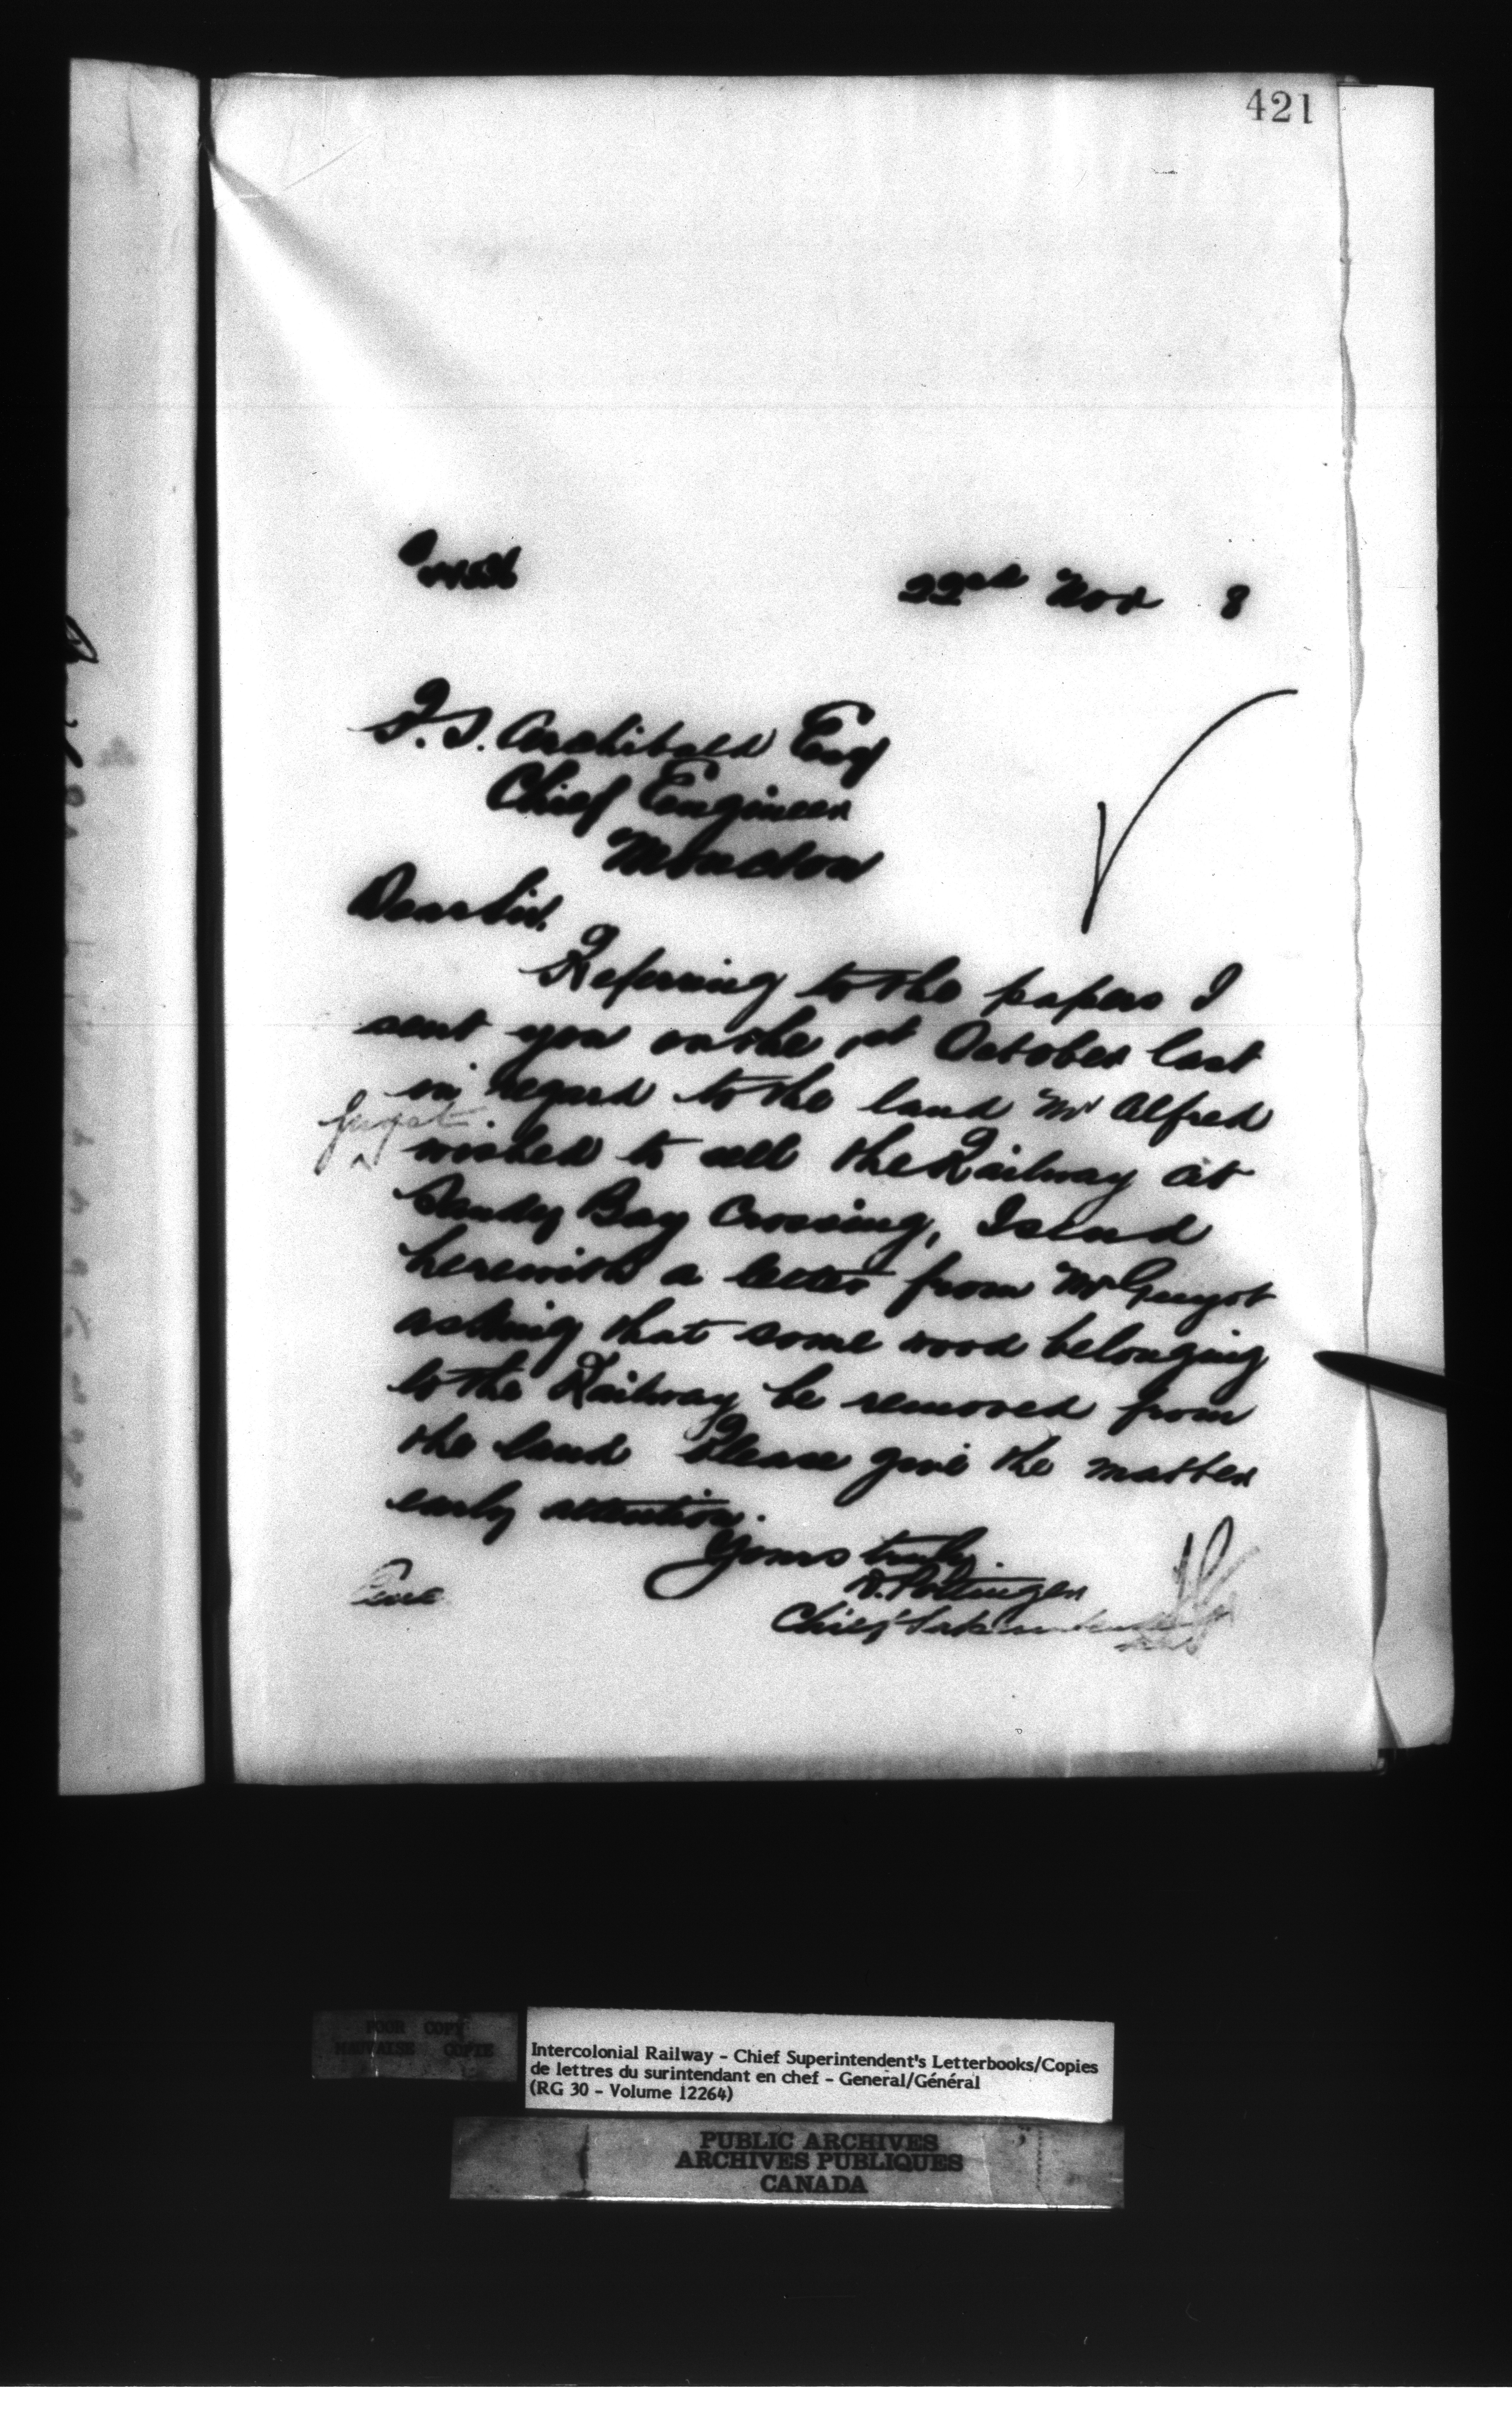 421
22nd Nov 8
P.S. Archibald Esq
Chief Engineer
Moncton
Dear Sir.
Referring to the papers I
sent you on the 1st October last
in regard to the land Mr Alfred
Guyot
wished to sell the Railway at
Sandy Bay Crossing, I send
herewith a letter from Mr Guyot
asking that some wood belonging
to the Railway be removed from
the land Please give the matter
early attention.
Yours truly
D. Pottinger
Chief Superintendent
POOR COPY
MAUVAISE COPIE
Intercolonial Railway - Chief Superintendent's Letterbooks/Copies
de lettres du surintendant en chef - General/Général
(RG 30 - Volume 12264)
PUBLIC ARCHIVES
ARCHIVES PUBLIQUES
CANADA